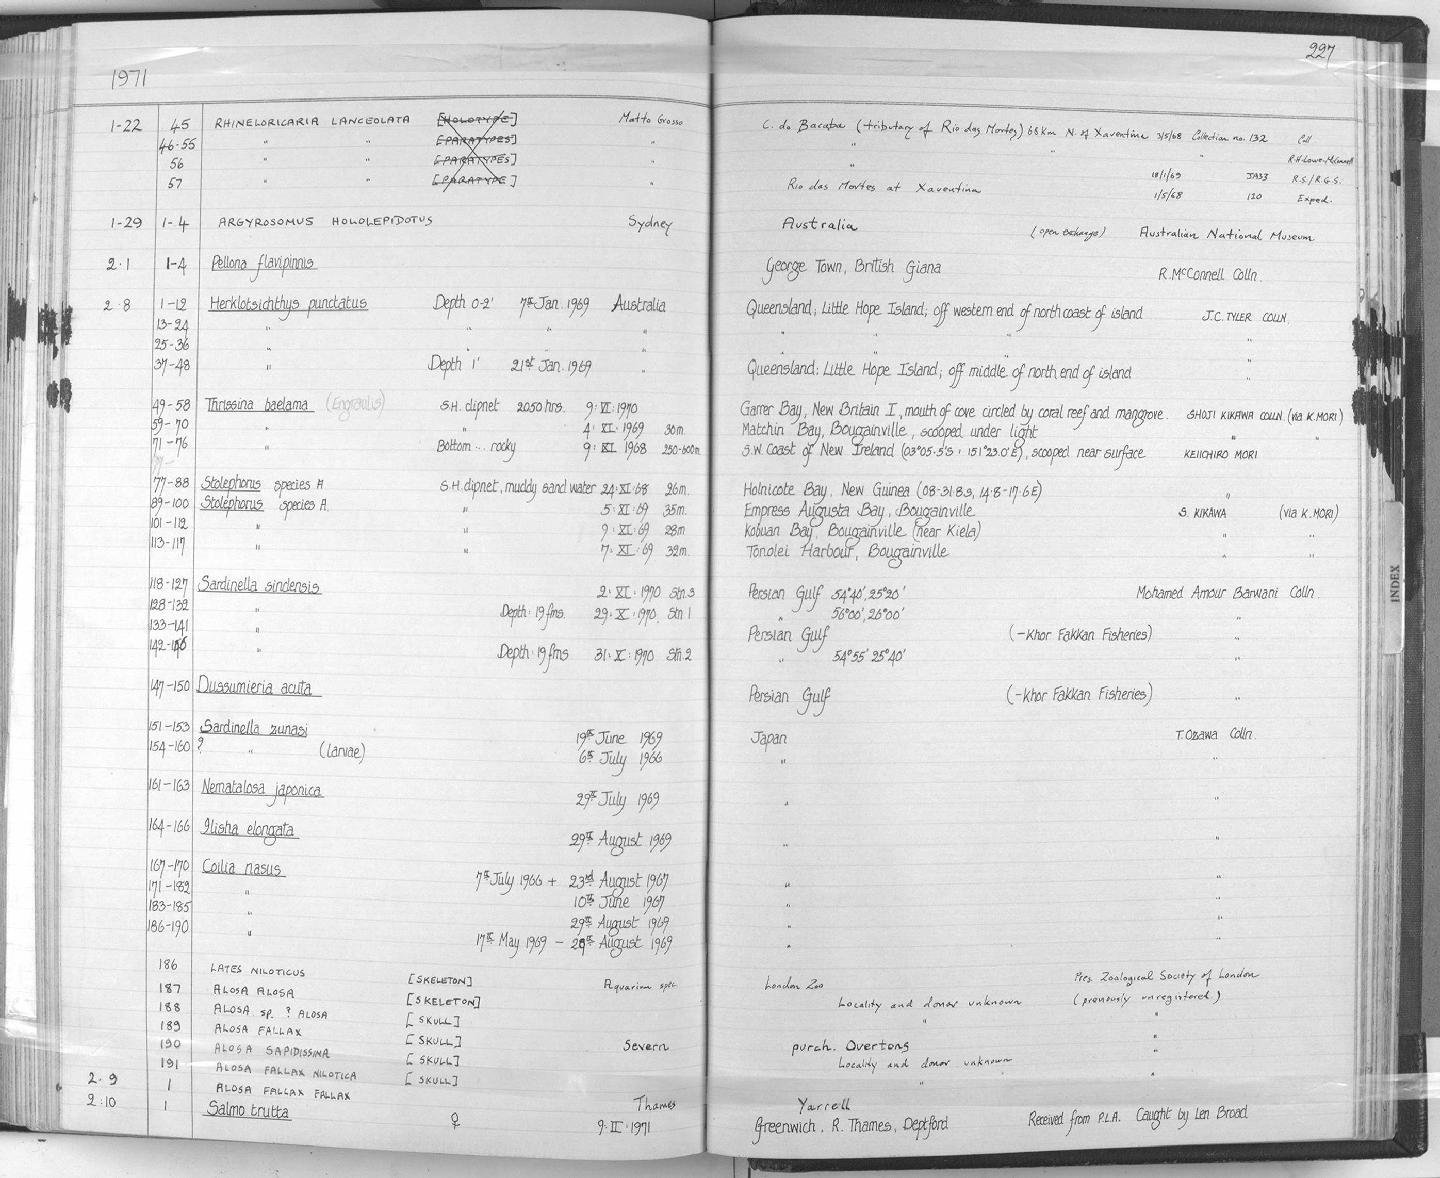 227
1971
1-22 45 RHINELORICARIA LANCEOLATA [HOLOTYPE] Matto Grosso C. do Bacaba (tributary of Rio das Mortes) 68km N. of Xavantina 3/5/68 Collection no. 132 Coll
46-55 " " [PARATYPES] " " " " R.H. Lowe-McConnell
56 " " [PARATYPES] " " 18/1/69 JA33 R.S./R.G.S.
57 " " [PARATYPE] " Rio das Mortes at Xavantina 1/5/68 120 Exped.
1-29 1-4 ARGYROSOMUS HOLOLEPIDOTUS Sydney Australia (open exchange) Australian National Museum
2·1 1-4 Pellona flavipinnis George Town, British Giana R. McConnell Colln.
2·8 1-12 Herklotsichthys punctatus Depth 0-2' 7th Jan. 1969 Australia Queensland; Little Hope Island; off western end of north coast of island J.C. TYLER COLLN.
13-24 " " " " " " " "
25-36 " " "
37-48 " Depth 1' 21st Jan. 1969 " Queensland: Little Hope Island; off middle of north end of island "
49-58 Thrissina baelama (Engraulis) S.H. dipnet 2050 hrs. 9·VI·1970 Garrer Bay, New Britain I, mouth of cove circled by coral reef and mangrove. SHOJI KIKAWA COLLN. (via K. MORI)
59-70 " " 4·XI·1969 30m. Matchin Bay, Bougainville, scooped under light " "
71-76 " Bottom... rocky 9·XI·1968 250-600m S.W. Coast of New Ireland (03°05·5'S · 151°23·0'E), scooped near surface KEIICHIRO MORI
77-88 Stolephorus species A S.H. dipnet, muddy sand water 24·XI·68 26m. Holnicote Bay, New Guinea (08-31·8S, 14·8-17·6E) "
89-100 Stolephorus species A " 5·XI·69 35m. Empress Augusta Bay, Bougainville S. KIKAWA (via K. MORI)
101-112 " " 9·XI·69 28m Kobuan Bay, Bougainville (near Kiela) " "
113-117 " " 7·XI·69 32m. Tonolei Harbour, Bougainville " "
118-127 Sardinella sindensis 2·XI·1970 Stn.3 Persian Gulf 54°40', 25°20' Mohamed Amour Barwani Colln.
128-132 " Depth: 19 fms. 29·X·1970. Stn 1 " 56°00', 26°00' "
133-141 " Persian Gulf (-Khor Fakkan Fisheries) "
142-146 " Depth: 19 fms 31·X·1970 Stn.2 " 54°55' 25°40' "
147-150 Dussumieria acuta Persian Gulf (-Khor Fakkan Fisheries) "
151-153 Sardinella zunasi 19th June 1969 Japan T. Ozawa Colln.
154-160 ? " (Larvae) 6th July 1966 " "
161-163 Nematalosa japonica 29th July 1969 " "
164-166 Ilisha elongata 29th August 1969 " "
167-170 Coilia nasus 7th July 1966 + 23rd August 1967 " "
171-182 " 10th June 1967 " "
183-185 " 29th August 1969 " "
186-190 " 17th May 1969 - 29th August 1969 " "
186 LATES NILOTICUS [SKELETON] Aquarium spec. London Zoo Pres. Zoological Society of London
187 ALOSA ALOSA [SKELETON] Locality and donor unknown (previously unregistered)
188 ALOSA SP. ? ALOSA [SKULL] " "
189 ALOSA FALLAX [SKULL] Severn purch. Overtons "
190 ALOSA SAPIDISSINA [SKULL] Locality and donor unknown "
191 ALOSA FALLAX NILOTICA [SKULL] " "
2·9 1 ALOSA FALLAX FALLAX Thames Yarrell
2·10 1 Salmo trutta ♀ 9·II·1971 Greenwich, R. Thames, Deptford Received from P.L.A. Caught by Len Broad
INDEX